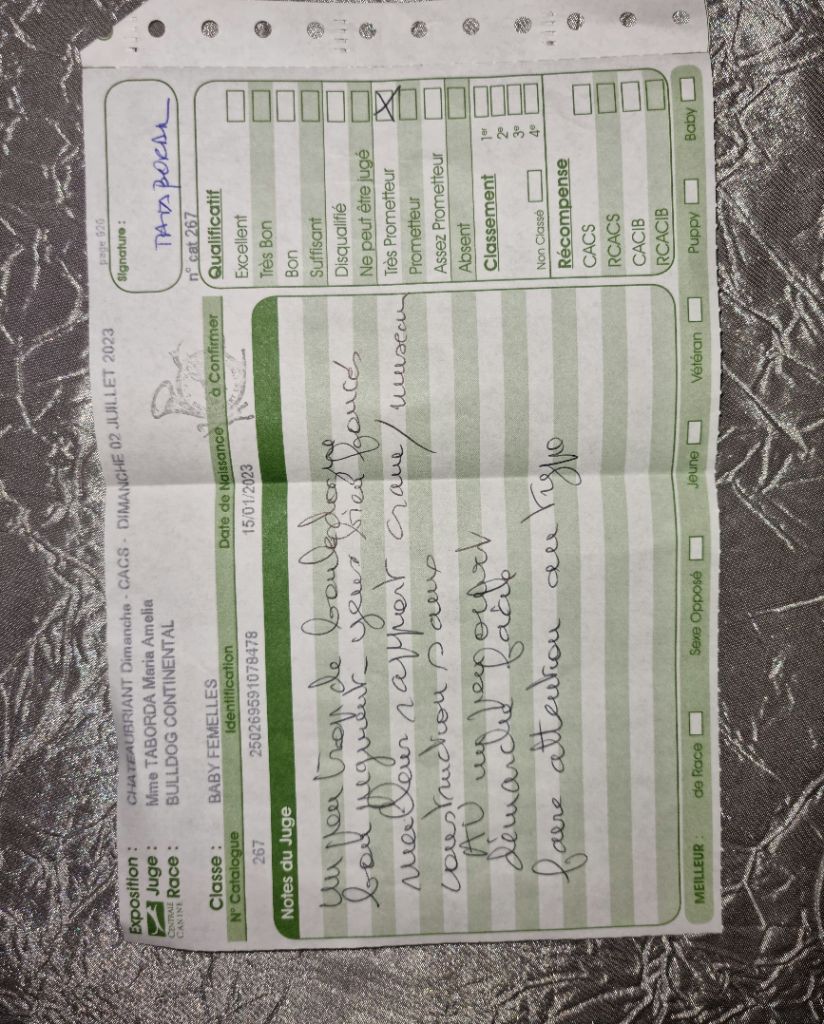 page 926
Exposition : CHATEAUBRIANT Dimanche - CACS - DIMANCHE 02 JUILLET 2023
Juge : Mme TABORDA Maria Amelia
Race : BULLDOG CONTINENTAL
CENTRALE CANINE
Signature :
TABORDA
Classe : BABY FEMELLES
n° cat 267
N° Catalogue Identification Date de Naissance à Confirmer
267 250269591078478 15/01/2023
Notes du Juge
un peu trop de bouledogue
bon pigment yeux bien foncés
meilleur rapport crane/museau
construction sans
AV
démarche faible
faire attention au type
Qualificatif
Excellent
Très Bon
Bon
Suffisant
Disqualifié
Ne peut être jugé
Très Prometteur X
Prometteur
Assez Prometteur
Absent
Classement 1er
2e
3e
4e
Non Classé
Récompense
CACS
RCACS
CACIB
RCACIB
MEILLEUR : de Race Sexe Opposé Jeune Vétéran Puppy Baby